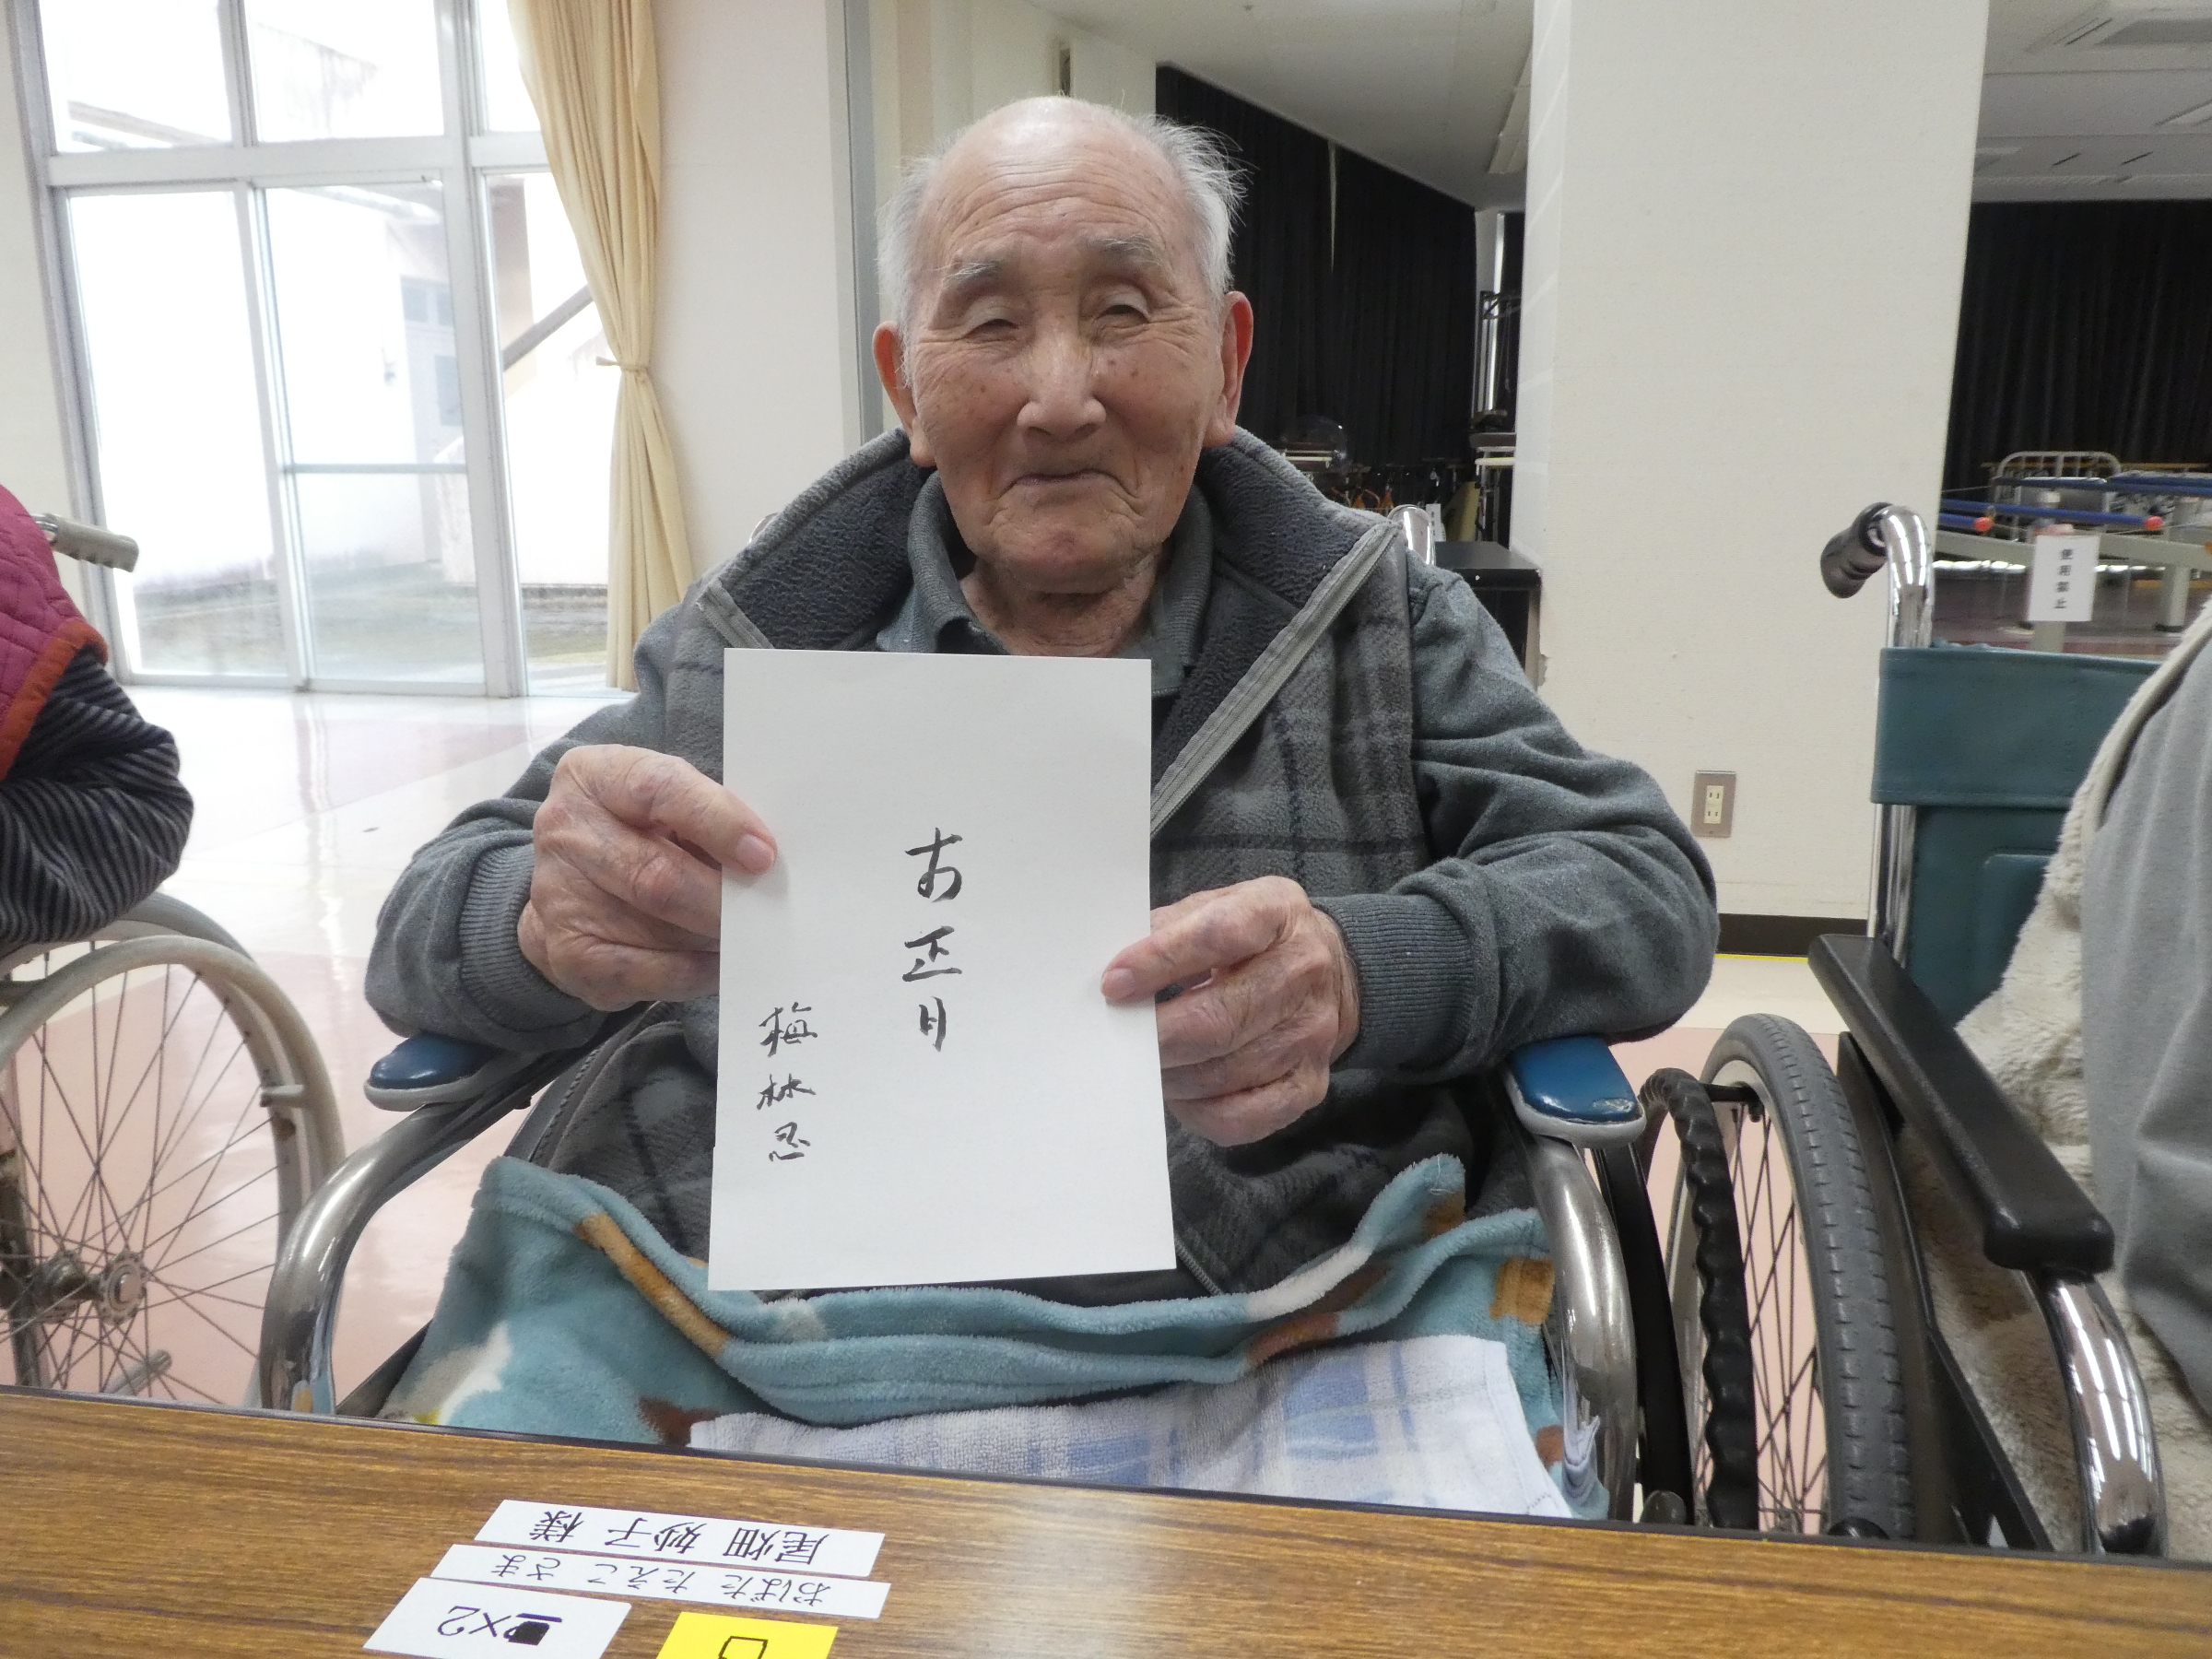 お正月
梅林忍
使用禁止
尾畑 妙子 様
おばた たえこ さま
×2